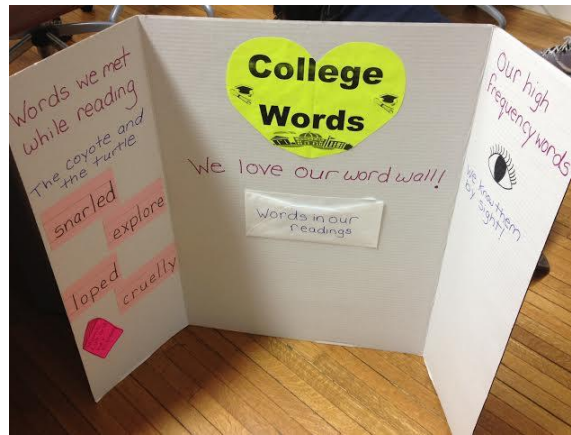 Words we met
while reading
The coyote and
the turtle
snarled
explore
loped
cruelly
College
Words
We love our word wall!
Words in our
readings
Our high
frequency words
We know them
by sight!